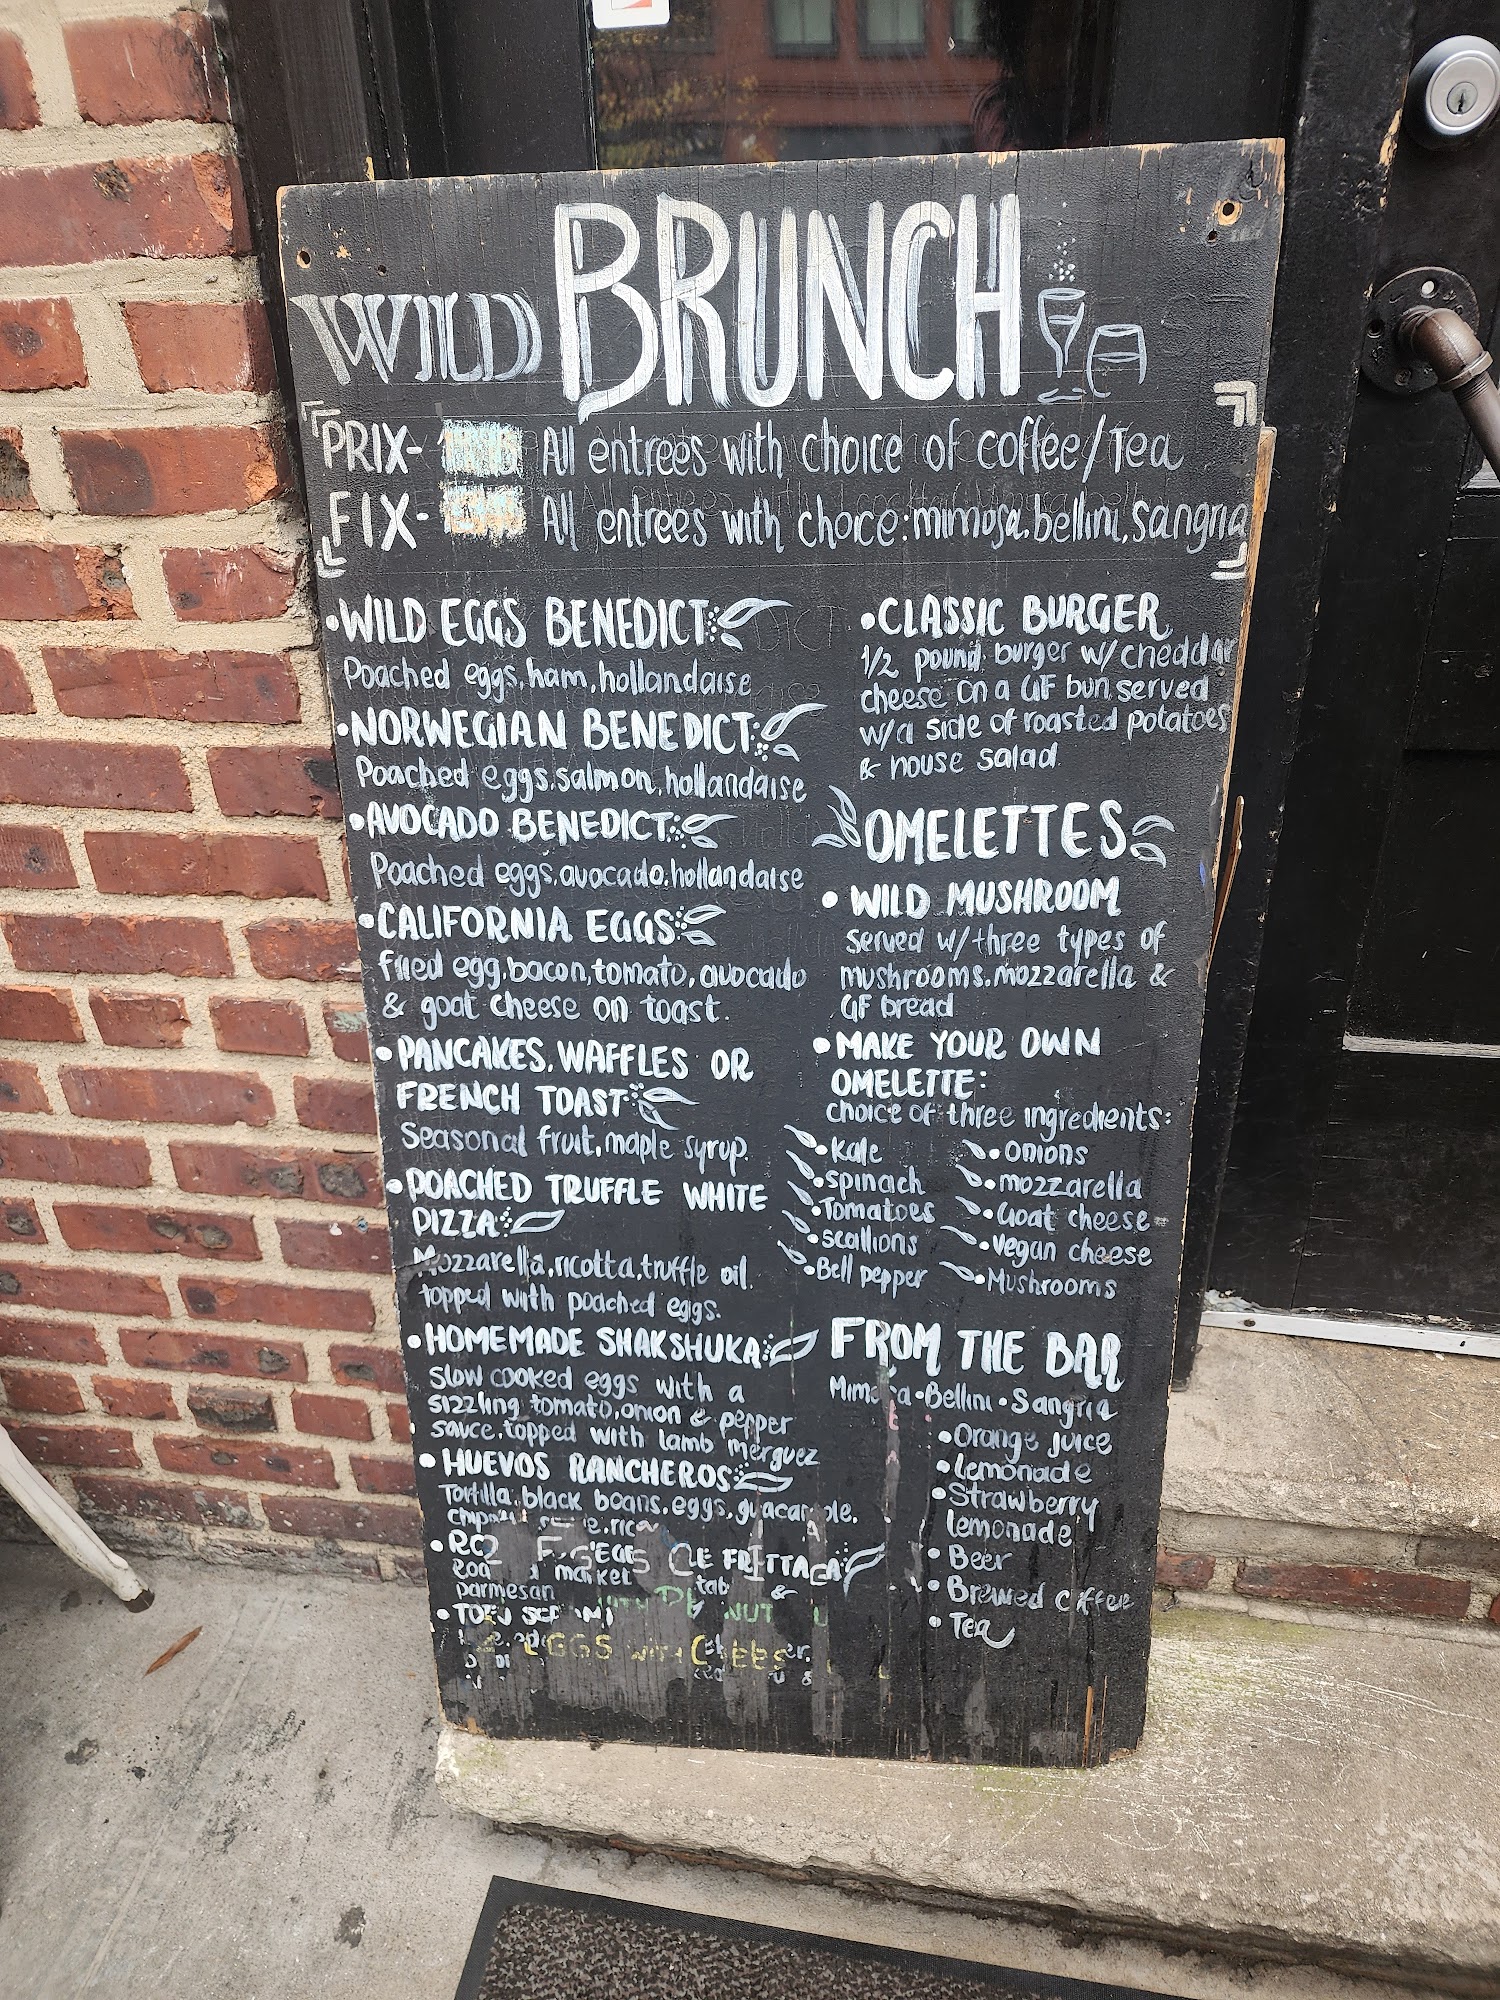 WILD BRUNCH
PRIX- All entrees with choice of coffee/Tea
FIX- All entrees with choice: mimosa, bellini, sangria
•WILD EGGS BENEDICT:
Poached eggs, ham, hollandaise
•NORWEGIAN BENEDICT:
Poached eggs, salmon, hollandaise
•AVOCADO BENEDICT:
Poached eggs, avocado, hollandaise
•CALIFORNIA EGGS:
fried egg, bacon, tomato, avocado
& goat cheese on toast.
•PANCAKES, WAFFLES OR
FRENCH TOAST:
Seasonal fruit, maple syrup.
•POACHED TRUFFLE WHITE
PIZZA:
Mozzarella, ricotta, truffle oil
topped with poached eggs.
•HOMEMADE SHAKSHUKA:
Slow cooked eggs with a
sizzling tomato, onion & pepper
sauce, topped with lamb merguez
•HUEVOS RANCHEROS:
Tortilla, black beans, eggs, guacamole,
market
parmesan &
EGGS WITH
•CLASSIC BURGER
1/2 pound burger w/ cheddar
cheese on a GF bun served
w/a side of roasted potatoes
& house salad
OMELETTES
•WILD MUSHROOM
served w/ three types of
mushrooms, mozzarella &
GF bread
•MAKE YOUR OWN
OMELETTE:
choice of three ingredients:
•Kale
•spinach
•Tomatoes
•scallions
•Bell pepper
•onions
•mozzarella
•Goat cheese
•vegan cheese
•Mushrooms
FROM THE BAR
Mimosa•Bellini•Sangria
•Orange juice
•Lemonade
•Strawberry
lemonade
•Beer
•Brewed coffee
•Tea